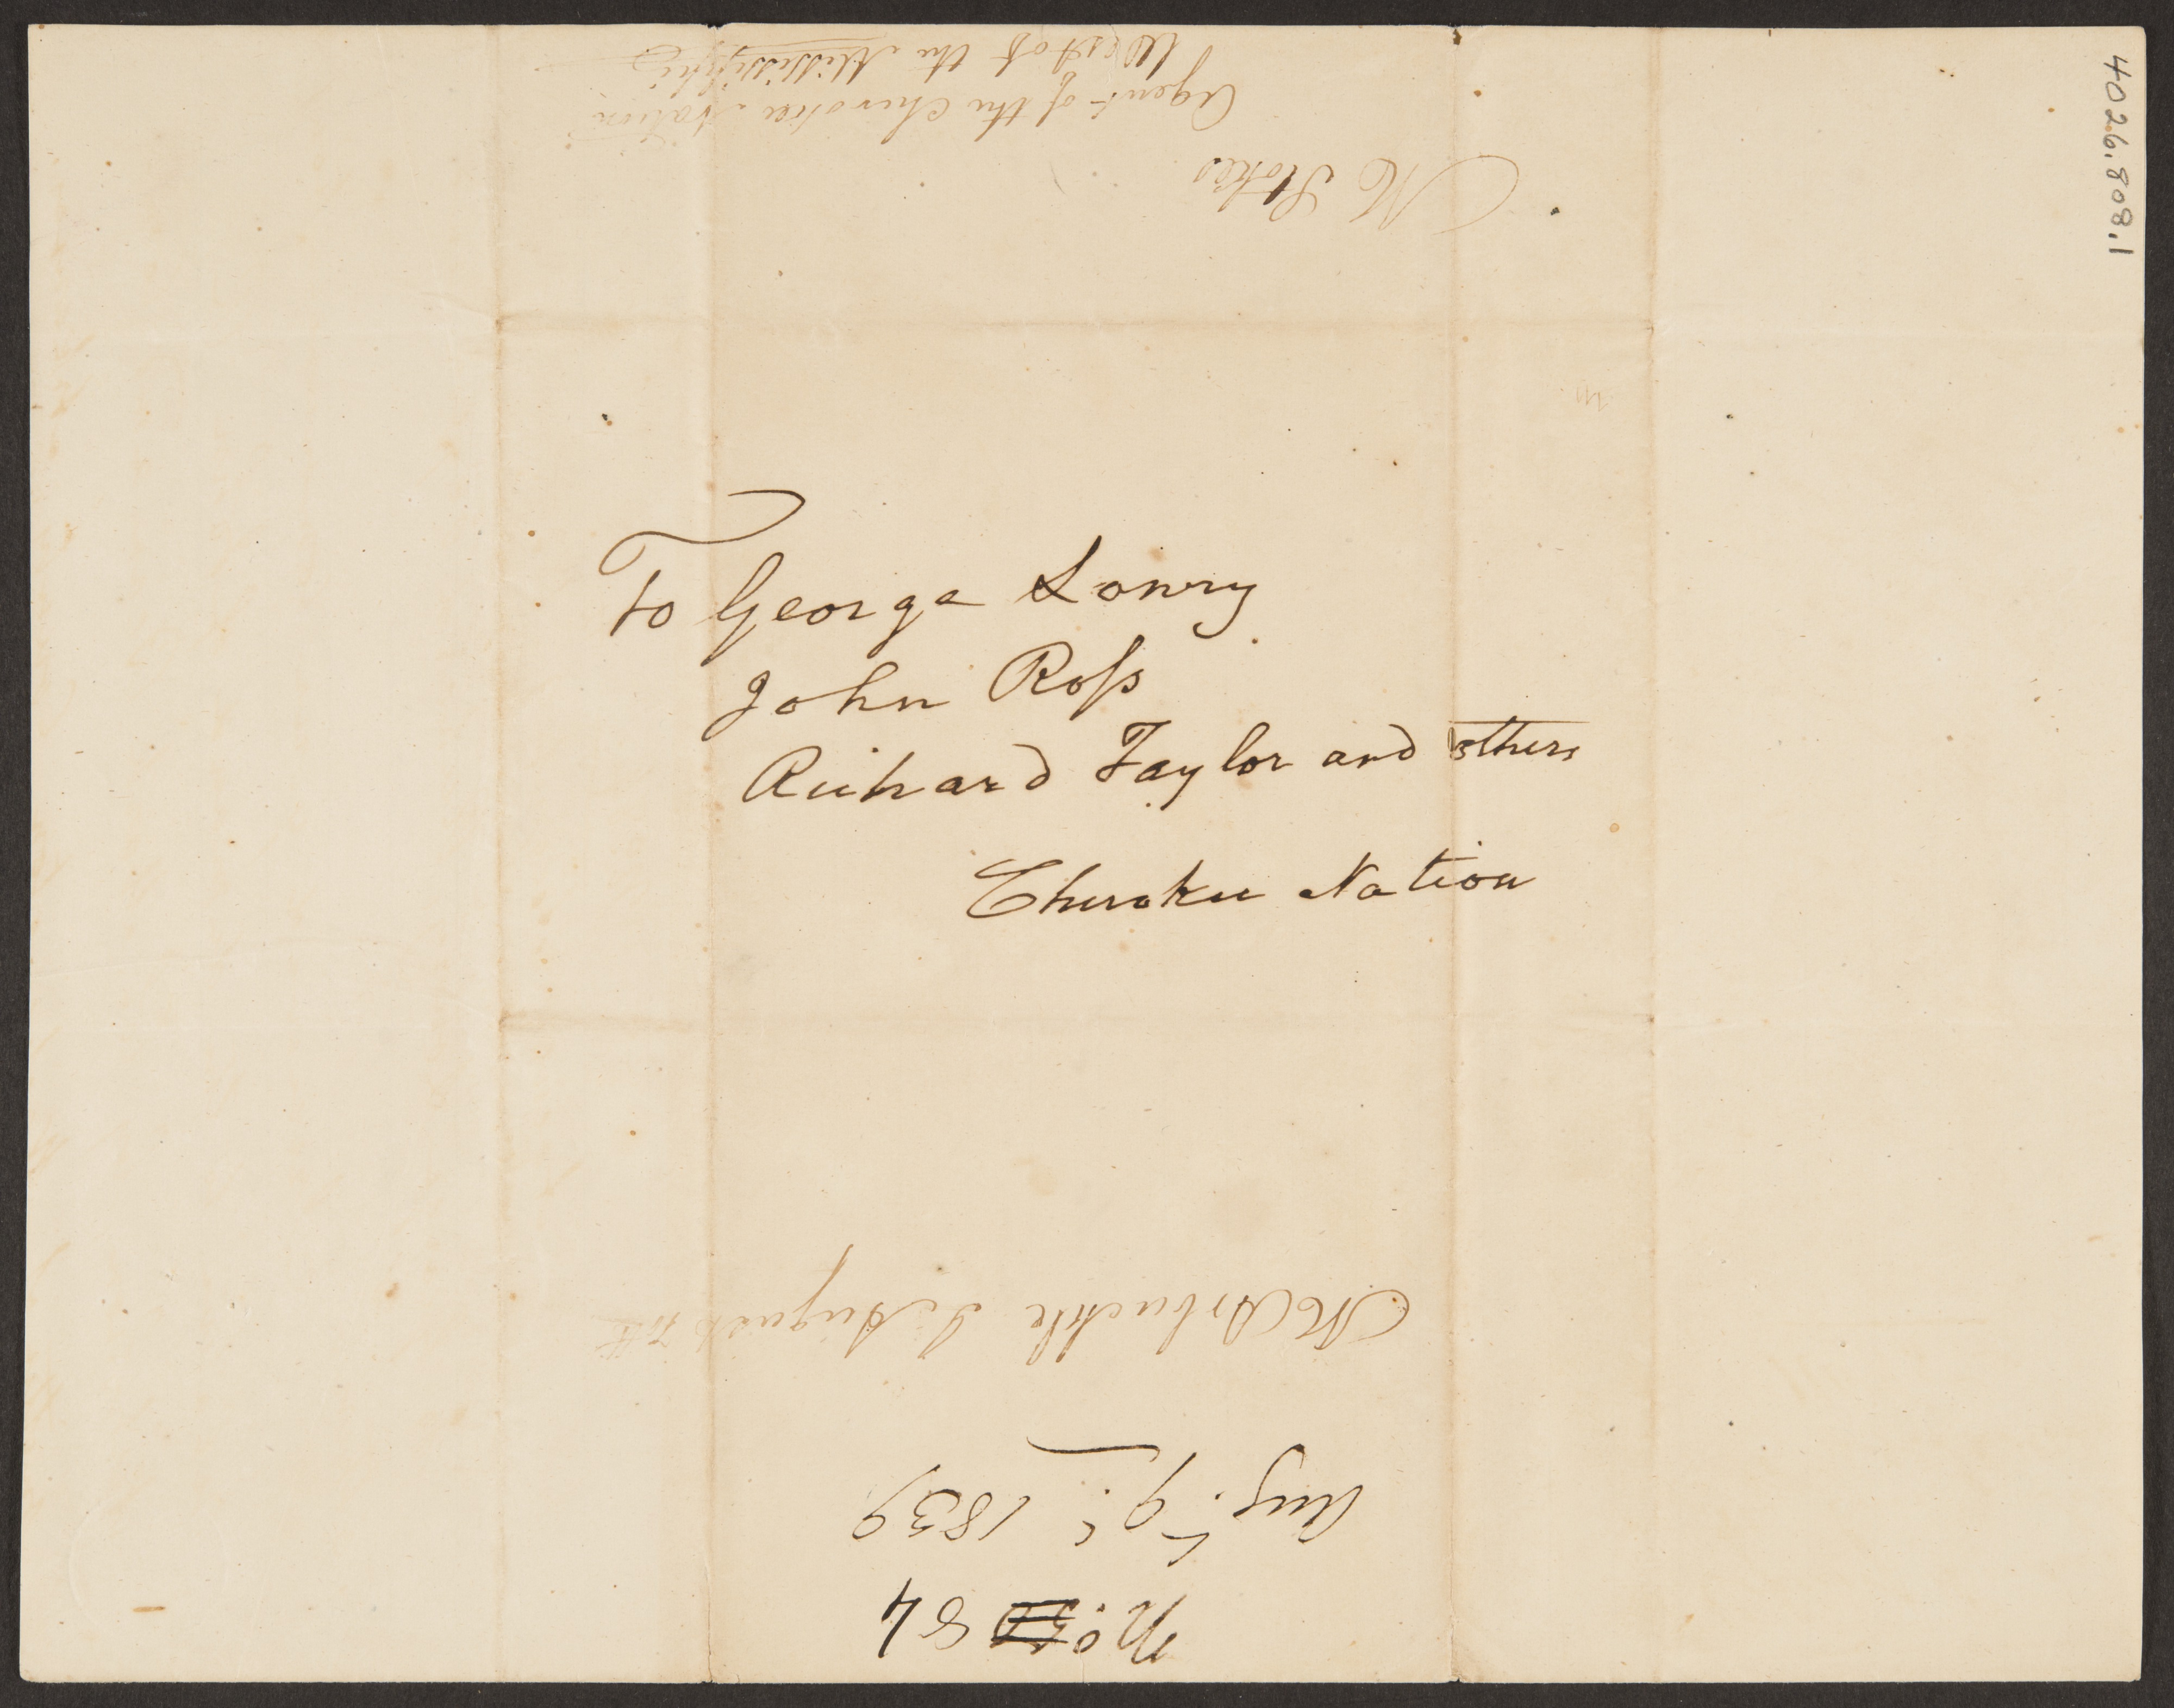 4026.808.1
M Stokes
Agent of the Cherokee Nation
West of the Mississippi
To George Lowry
John Ross
Richard Taylor and others
Cherokee Nation
No. 84
Augt. 9. 1839
M Arbuckle